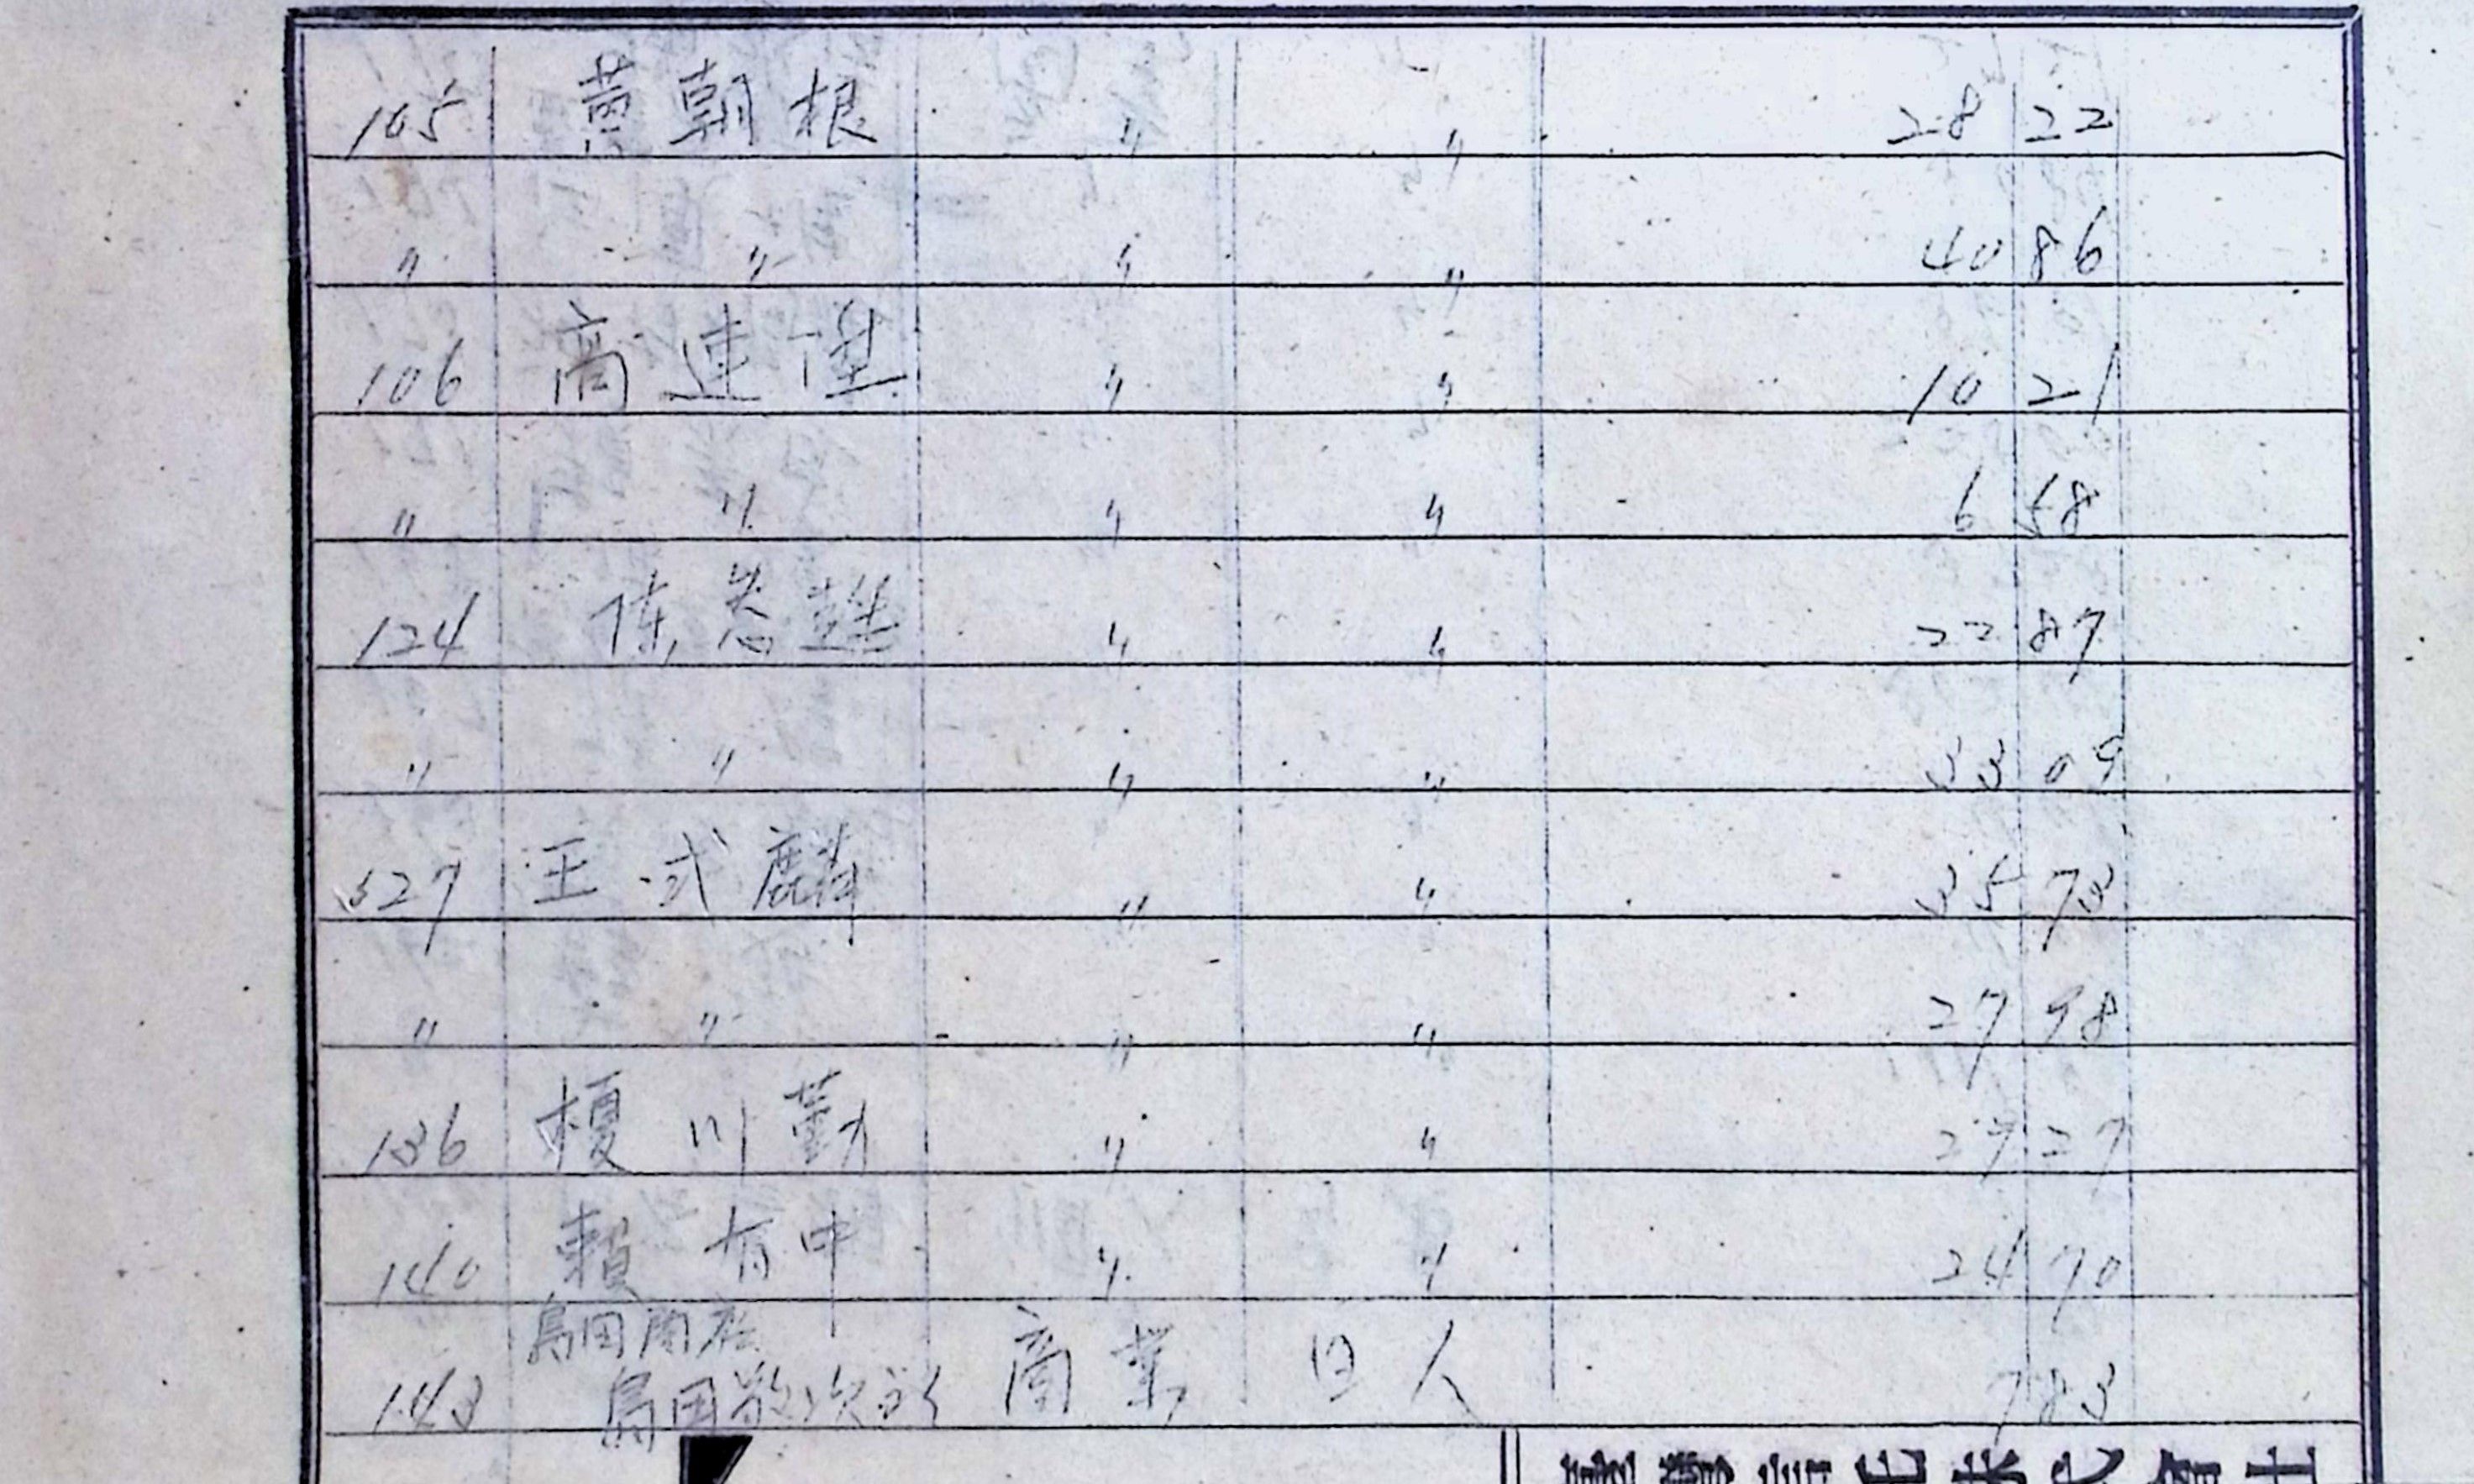 105 黄朝根 〃 〃 28 22
〃 〃 〃 〃 40 86
106 高連 〃 〃 10 21
〃 〃 〃 〃 6 58
124 陈 〃 〃 22 87
〃 〃 〃 〃 33 09
327 王式麟 〃 〃 35 73
〃 〃 〃 〃 27 98
136 榎川勤 〃 〃 27 27
140 賴有中 〃 〃 24 70
島田商店
143 島田 商業 日人 7 83